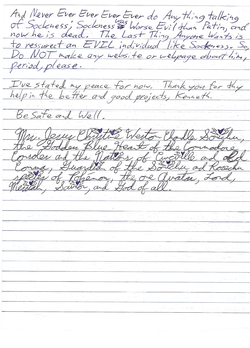 And Never Ever Ever Ever Ever do Anything talking
of Sockness; Sockness Worse Evil than Putin, and
now he is dead. The Last Thing Anyone Wants is
to ressurect an EVIL individual like Sockness. So,
Do NOT make any website or webpage about him,
period, please.
I've stated my peace for now. Thank you for thy
help in the better and good projects, Kenneth.
Be Safe and Well.
Mrs. Jesus Weston
the Golden Blue Heart of the Commodore
and the of and
Guardian of the and
of the Avatar, Lord,
Savior, and God of all.